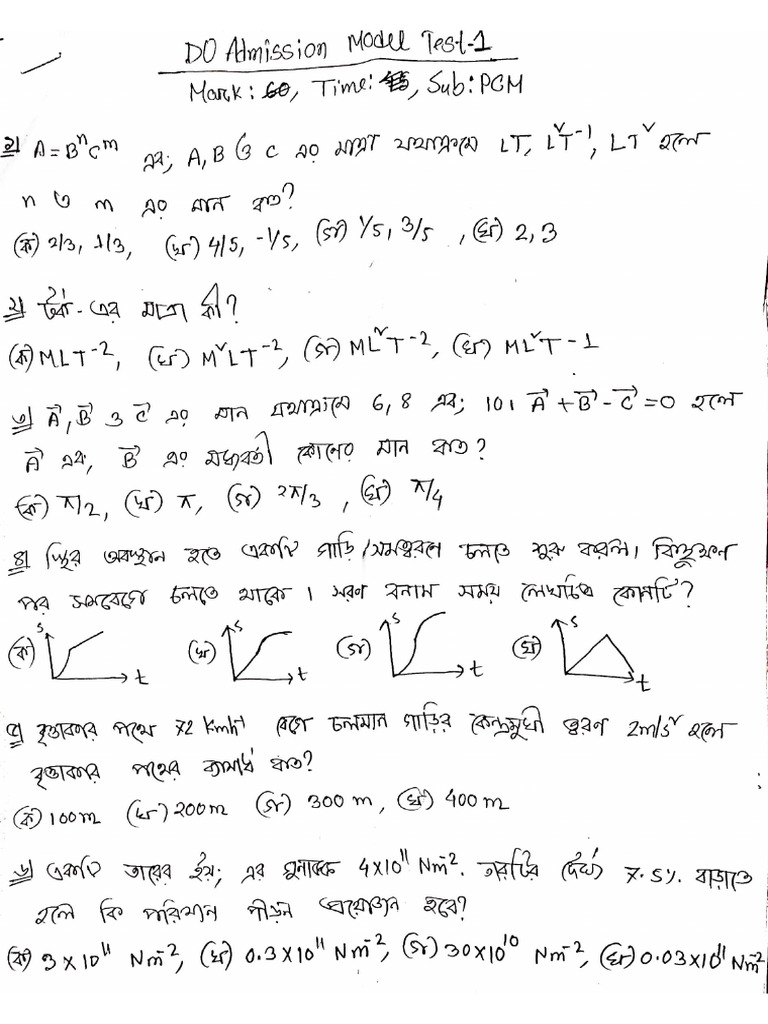 DU Admission Model Test-1
Mark: 60, Time: 45, Sub: PCM
১। A = BⁿCᵐ এবং A, B ও C এর মাত্রা যথাক্রমে LT, L²T⁻¹, LT² হলে
n ও m এর মান কত?
(ক) 2/3, 1/3, (খ) 4/5, -1/5, (গ) 1/5, 3/5, (ঘ) 2, 3
২। টর্ক-এর মাত্রা কী?
(ক) MLT⁻², (খ) M²LT⁻², (গ) ML²T⁻², (ঘ) ML²T-1
৩। A⃗, B⃗ ও C⃗ এর মান যথাক্রমে 6, 8 এবং 10। A⃗ + B⃗ - C⃗ = 0 হলে
A⃗ এবং B⃗ এর মধ্যবর্তী কোণের মান কত?
(ক) π/2, (খ) π, (গ) 2π/3, (ঘ) π/4
৪। স্থির অবস্থান হতে একটি গাড়ি সমত্বরণে চলতে শুরু করল। কিছুক্ষণ
পর সমবেগে চলতে থাকে। সরণ বনাম সময় লেখচিত্র কোনটি?
(ক) s t (খ) s t (গ) s t (ঘ) s t
৫। বৃত্তাকার পথে 72 kmh⁻¹ বেগে চলমান গাড়ির কেন্দ্রমুখী ত্বরণ 2m/s² হলে
বৃত্তাকার পথের ব্যাসার্ধ কত?
(ক) 100m (খ) 200m (গ) 300 m, (ঘ) 400 m
৬। একটি তারের ইয়ং এর গুনাঙ্ক 4×10¹¹ Nm⁻². তারটির দৈর্ঘ্য 7.5% বাড়াতে
হলে কি পরিমান পীড়ন প্রয়োজন হবে?
(ক) 3 × 10¹¹ Nm⁻², (খ) 0.3×10¹¹ Nm⁻², (গ) 30×10¹⁰ Nm⁻², (ঘ) 0.03×10¹¹ Nm⁻²